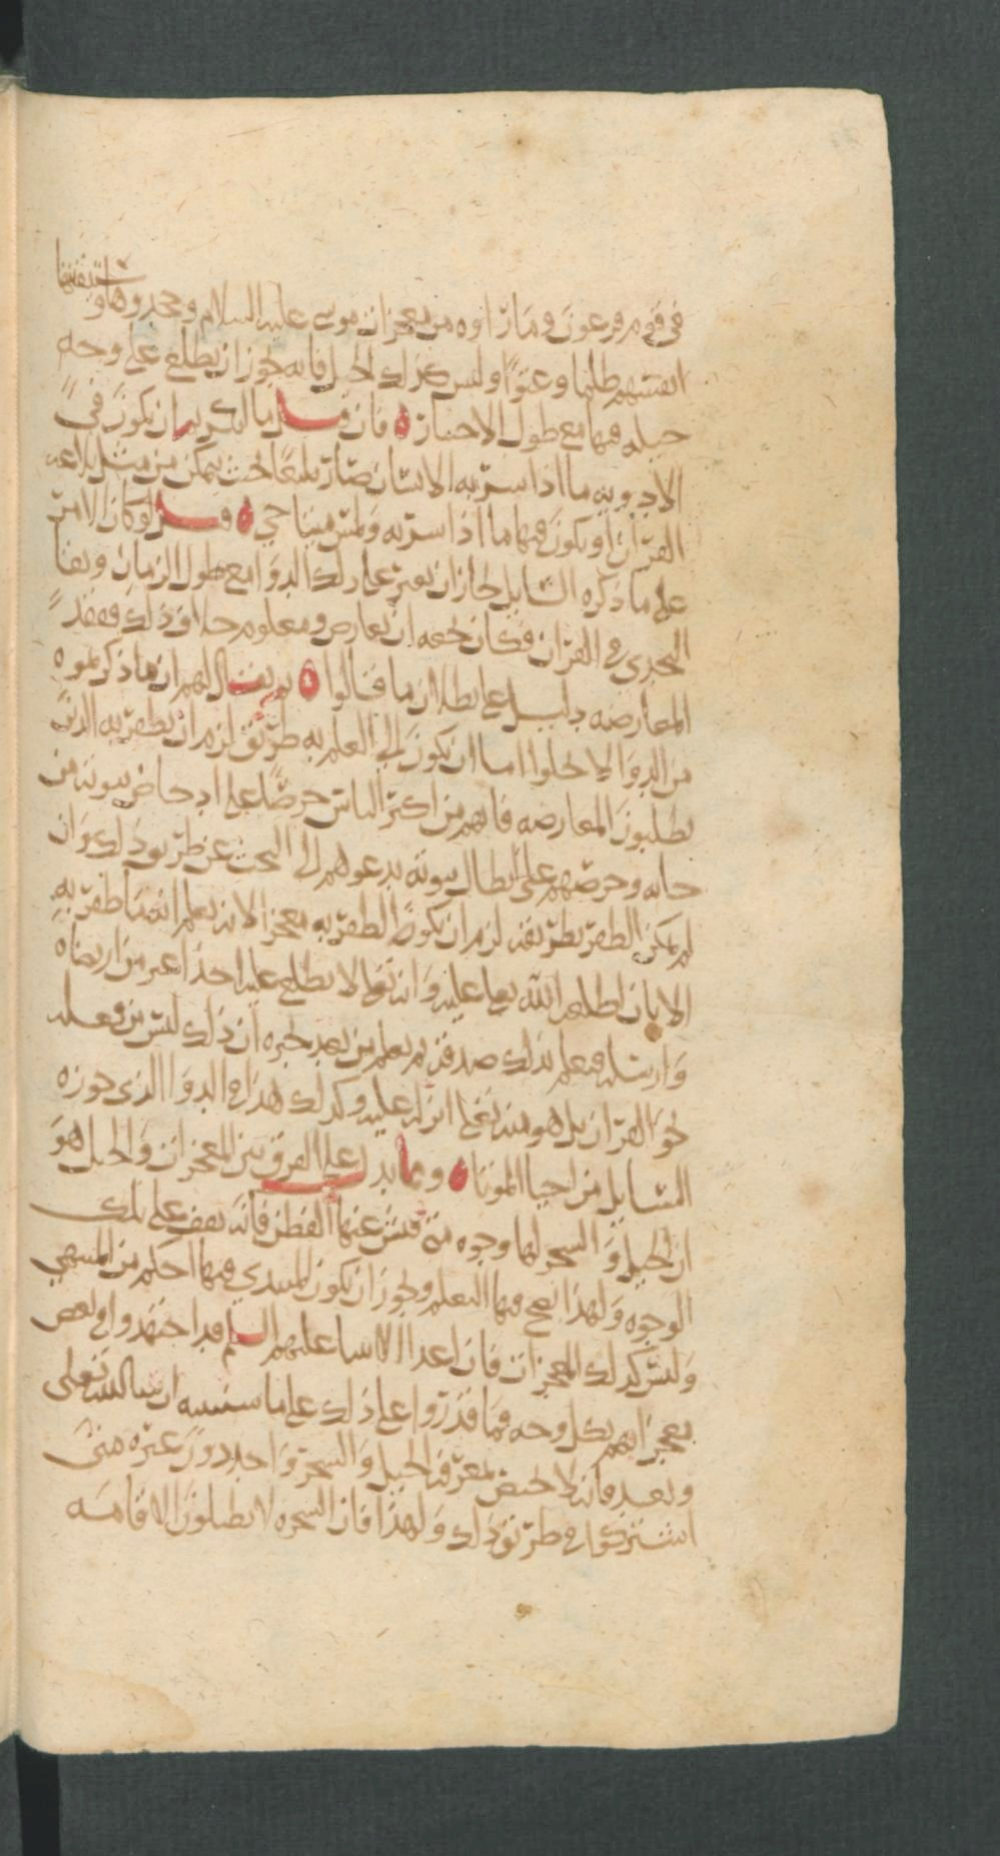 في قوم فرعون وما راوه من معجزات موسى عليه السلام وجحدوها واستيقنتها
انفسهم ظلما وعتوا وليس كذلك الحيل فانه يجوز ان يطلع على وجه
حيله فيها مع طول الاختبار ه فان قيل ما انكرتم ان يكون في
الادويه ما اذا استر به الانسان صار بليغا بحيث يمكن من مثل بلاغه
القران او يكون فيها ما اذا استر به ولمس ميتا حي ه قيل لو كان الامر
على ما ذكره السايل لجاز ان يعثر على ذلك الدوا مع طول الزمان وبقا
التحدي في القران فكان يجب ان يعارض ومعلوم خلاف ذلك ففقد
المعارضه دليل على بطلان ما قالوا ه ثم يقال لهم ان ما ذكرتموه
من الدوا لا يخلوا اما ان يكون الى العلم به طريق لزم ان يظفر به الذين
يطلبون المعارضه فانهم من اكثر الناس حرصا على ادحاض نبوته من
حاله وحرصهم على ابطال نبوته يدعوهم الى البحث عن طريق ذلك وان
لم يمكن الظفر بطريقه لزم ان يكون الظفر به معجزا لانه يعلم انه ما ظفر به
الا بان اطلعه الله تعالى عليه وانه تعالى لا يطلع عليه احدا غير من ارتضاه
وارسله فيعلم بذلك صدقه ثم يعلم من بعد خبره ان ذلك ليس من فعله
نحو القران بل هو منه تعالى انزله عليه وكذلك هذا في الدوا الذي جوزه
السايل من احيا الموتا ه ومما يدل على الفرق بين المعجزات والحيل هو
ان الحيل والسحر لها وجوه متى فتش عنها الفطن فانه يقف على تلك
الوجوه ولهذا يصح فيها التعلم ويجوز ان يكون المبتدي فيها احكم من المنتهي
وليس كذلك المعجزات فان اعدا الانبيا عليهم السلم قد اجتهدوا في بعض
معجزاتهم بكل وجه فما قدروا على ذلك على ما سنبينه ان شا الله تعالى
وبعد فانه لا يختص بمعرفه الحيل والسحر واحد دون غيره متى
اشتركوا في طريق ذلك ولهذا فان السحره لا يصلون الا قامه